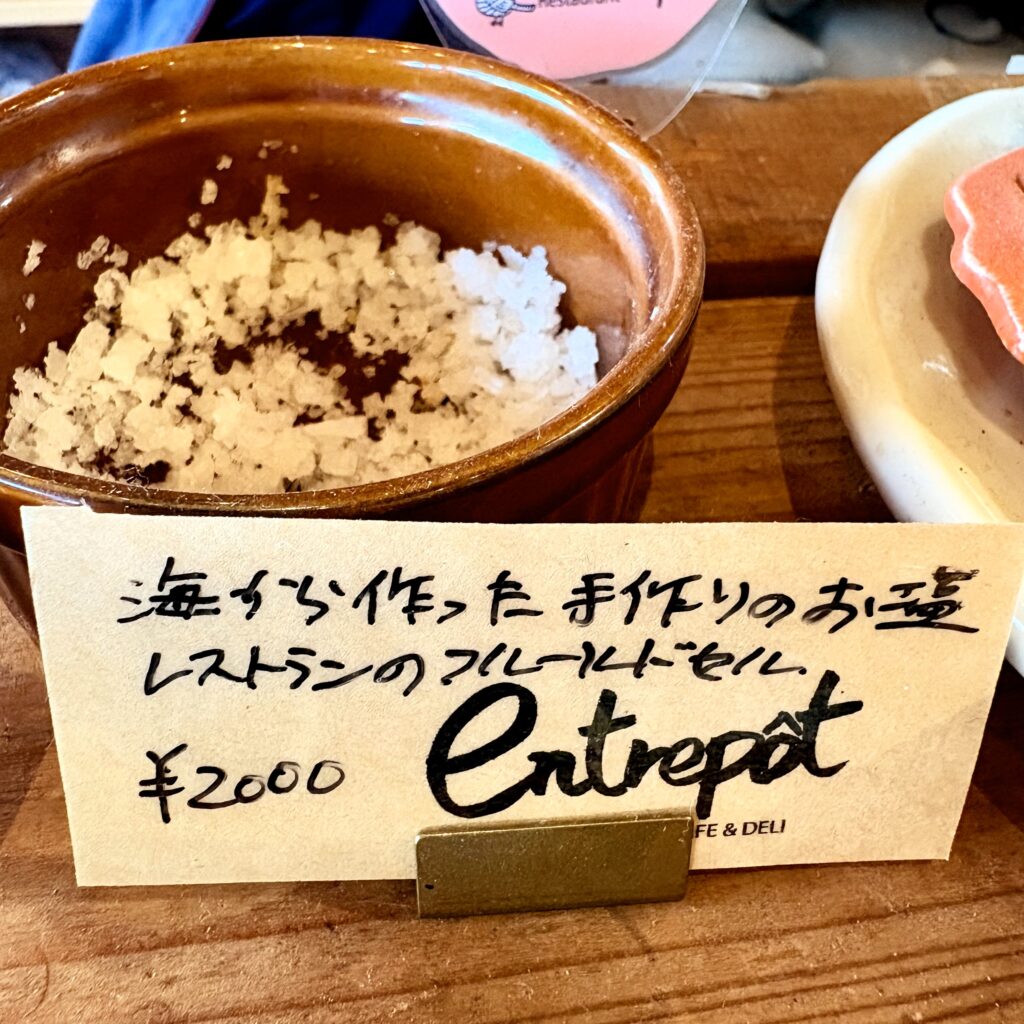 Restaurant
海から作った手作りのお塩
レストランのフルールドセル.
¥2000
entrepôt
FE & DELI